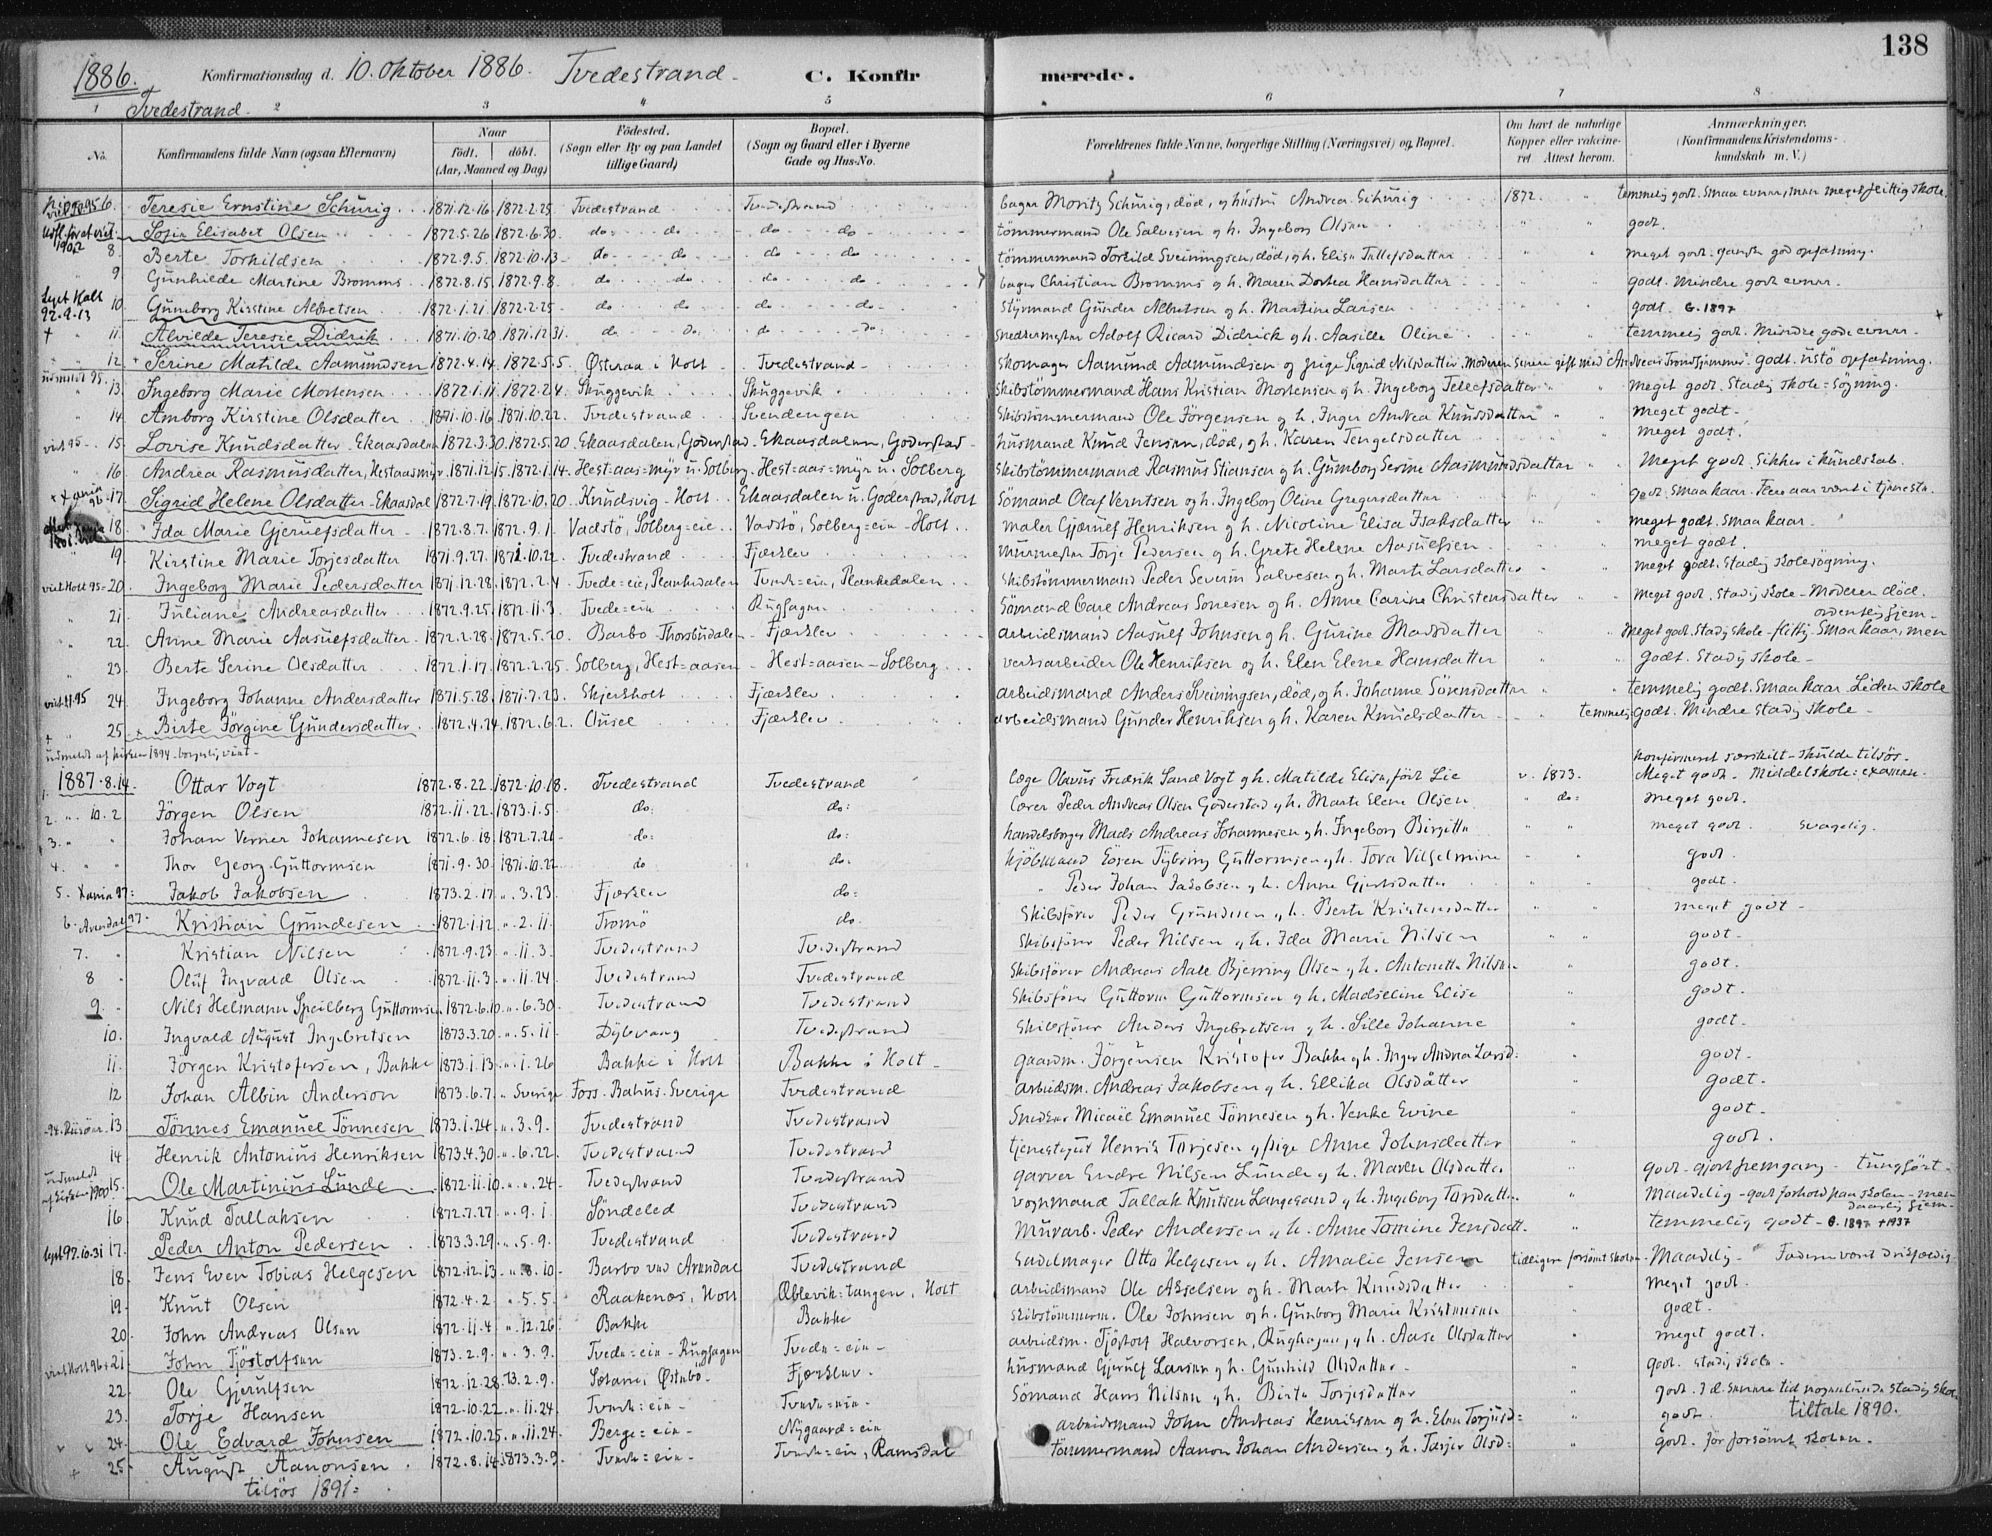 138
1886. Konfirmationsdag d. 10. Oktober 1886. Tvedestrand. C. Konfirmerede.
Tvedestrand.
1 2 3 4 5 6 7 8
No. Konfirmandens fulde Navn (ogsaa Efternavn) Naar Født. døbt. (Aar, Maaned og Dag) Fødested. (Sogn eller By og paa Landet tillige Gaard) Bopæl. (Sogn og Gaard eller i Byerne Gade og Hus-No. Forældrenes fulde Navne, borgerlige Stilling (Næringsvei) og Bopæl. Om havt de naturlige Kopper eller vakcineret Attest herom. Anmærkninger. (Konfirmandens Kristendomskundskab m. V.)
6. Teresie Ernstine Schurig 1871.12.16 1872.2.25 Tvedestrand Tvedestrand bager Moritz Schurig, død, og hustru Andrea Schurig 1872. temmelig godt. Smaa evner, men meget flittig skole.
1902 Sofie Elisabet Olsen 1872.5.26 1872.6.30. do do do do tømmermand Ole Salvesen og h. Ingeborg Olsen godt.
8 Berte Torkildsen 1872.9.5. 1872.10.13 do do do do tømmermand Torkild Sveiningsen, død, og h. Elise Tellefsdatter meget godt. ganske god opfatning.
9 Gunhilde Martine Bromms 1872.8.15. 1872.9.8. do do do do bager Christian Bromms og h. Maren Dorthea Hansdatter godt. Mindre gode evner.
10 Gunborg Kirstine Albretsen 1872.1.21 1872.2.25 do do do do Styrmand Gunder Albretsen og h. Martine Larsen godt. G. 1897
+ 11. Alvilde Teresie Didrik 1871.10.20 1871.12.31. do do do do Snedkermester Adolf Ricard Didrick og h. Aasille Oline temmelig godt. Mindre gode evner.
12 Serine Matilde Aamundsen 1872.4.14. 1872.5.5. Østeraa i Holt Tvedestrand Skomager Aamund Aamundsen og pige Sigrid Nilsdatter. Moderen senere gift med Andreas godt. ustø opfatning.
13. Ingeborg Marie Mortensen 1872.1.11 1872.2.4. Skuggevik Skuggevik Skibstømmermand Hans Kristian Mortensen og h. Ingeborg Tellefsdatter meget godt. Stadig skole=søgning.
14 Amborg Kirstine Olsdatter 1871.10.16 1871.10.22. Tvedestrand Svendengen Skibstømmermand Ole Jørgensen og h. Inger Andrea Knudsdatter meget godt.
15. Lovise Knudsdatter Ekaasdalen 1872.3.30. 1872.5.20. Ekaasdalen, Goderstad Ekaasdalen, Goderstad husmand Knud Jensen, død, og h. Karen Tengelsdatter meget godt.
16 Andrea Rasmusdatter, Hestaasmyr 1871.12.15. 1872.1.14. Hest=aas=myr u. Solberg. Hest=aas=myr u. Solberg Skibstømmermand Rasmus Stiansen og h. Gunborg Serine Aasmundsdatter Meget godt. Sikker i kundskab.
17. Sigrid Helene Olsdatter Ekaasdal 1872.7.19. 1872.10.20. Knudsvig - Holt Ekaasdalen u. Goderstad, Holt Sømand Olaf Verntsen og h. Ingeborg Oline Gregersdatter godt. Smaa kaar. Flere aar været i tjeneste.
18. Ida Marie Gjerulfsdatter 1872.8.7. 1872.9.1. Vadstø, Solberg=eie Vadstø, Solberg=eie - Holt maler Gjærulf Henriksen og h. Nicoline Elisa Isaksdatter meget godt. Smaa kaar.
19 Kirstine Marie Torjesdatter 1871.9.27. 1871.10.22 Tvedestrand Fjærklev murmester Torje Pedersen og h. Grete Helene Aasulfsen meget godt.
viet Holt 95 20. Ingeborg Marie Pedersdatter 1871.12.28. 1872.2.4. Tvede=eie, Plankedalen Tvede=eie, Plankedalen Skibstømmermand Peder Severin Salvesen og h. Marte Larsdatter meget godt. Stadig skolesøgning.
21. Juliane Andreasdatter 1872.9.25. 1872.11.3. Tvede=eie Rughagen Sømand Carl Andreas Sonesen og h. Anne Carine Christensdatter Meget godt. Stadig skole - Moderen død.
22. Anne Marie Aasulfsdatter 1872.2.28. 1872.5.20. Barbo Thorsbudalen Fjærklev arbeidsmand Aasulf Johnsen og h. Gurine Madsdatter Meget godt. Stadig skole - flittig. Smaa kaar, men ordentlig hjem.
23. Berte Serine Olsdatter 1872.1.17. 1872.2.25. Solberg, Hest=aasen Hest=aasen - Solberg verksarbeider Ole Henriksen og h. Elen Elene Hansdatter Godt. Stadig skole
viet H. 95 24. Ingeborg Johanne Andersdatter 1871.5.28. 1871.7.23. Skjerkholt Fjærklev arbeidsmand Anders Sveiningsen, død, og h. Johanne Sørensdatter temmelig godt. Smaa kaar. Liden skole
25 Birte Jørgine Gundersdatter 1872.4.24. 1872.6.2. Ousel Fjærklev arbeidsmand Gunder Henriksen og h. Karen Knudsdatter temmelig godt. Mindre stadig skole
udmeldt af kirken 1894. borgerlig viet
konfirmeret særskilt - skulde tilsøs.
1. 1887.8.14. Ottar Vogt 1872.8.22. 1872.10.18. Tvedestrand Tvedestrand læge Olavus Fredrik Sand Vogt og h. Matilde Elise, født Lie v. 1873. Meget godt. Middelskole=examen.
2. 10.2 Jørgen Olsen 1872.11.22. 1873.1.5. do: do: lærer Peder Andreas Olsen Goderstad og h. Marte Elene Olsen do: meget godt.
3. Johan Verner Johannesen 1872.6.18 1872.7.21 do: do: handelsborger Mads Andreas Johannesen og h. Ingeborg Birgitte meget godt. svagelig.
4. Thor Georg Guttormsen 1871.9.30. 1871.10.22 do do: kjøbmand Esten Tybring Guttormsen og h. Tora Vilhelmine godt.
5. Xania 97: Jakob Jakobsen 1873.2.17. 3.23. Fjærklev do: Peder Johan Jakobsen og h. Anne Gjertsdatter godt.
6. Arendal 97. Kristian Gundesen 1872.1.12. 2.11. Tromø do. Skibsfører Peder Gundesen og h. Berte Kristensdatter meget godt
7. Kristian Nilsen 1872.9.23. 11.3. Tvedestrand Tvedestrand Skibsfører Peder Nilsen og h. Ida Marie Nilsen godt.
8 Oluf Ingvald Olsen 1872.11.3. 11.24. Tvedestrand Tvedestrand Skibsfører Andreas Aale Bjerring Olsen og h. Antonette Nilsen godt.
9 Nils Helmann Speilberg Guttormsen 1872.6.10. 6.30. Tvedestrand Tvedestrand Skibsfører Guttorm Guttormsen og h. Madseline Elise godt.
10. Ingvald August Ingebretsen 1873.3.20. 5.11. Dybvaag Tvedestrand Skibsfører Anders Ingebretsen og h. Sille Johanne godt.
11. Jørgen Kristofersen, Bakke 1873.1.13. 1.26 Bakke i Holt Bakke i Holt gaardm. Jørgensen Kristofer Bakke og h. Inger Andrea Larsd: godt.
12 Johan Albin Anderson 1873.6.7. Sverige Foss. Bahus. Sverige Tvedestrand arbeidsm. Andreas Jakobsen og h. Ellika Olsdåtter godt.
94. Risøer. 13 Tønnes Emanuel Tønnesen 1873.1.24. 3.9. Tvedestrand Tvedestrand Snedker Micael Emanuel Tønnesen og h. Venke Evine godt.
14 Henrik Antonius Henriksen 1873.4.30. 6.22. Tvedestrand Tvedestrand tjenestegut Henrik Torjesen og pige Anne Johnsdatter godt.
udmeldt af kirken 1900 15. Ole Martinius Lunde 1872.11.10. 24. Tvedestrand Tvedestrand garver Endre Nilsen Lunde og h. Maren Olsdatter godt - gjort fremgang - tunghørt
16 Knud Tallaksen 1872.7.27. 9.1. Søndeled Tvedestrand vognmand Tallak Knutsen Langesand og h. Ingeborg Torsdatter Maadelig - godt forhold paa skolen - men daarlig hjem
97.10.31 17. Peder Anton Pedersen 1873.3.29. 5.9. Tvedestrand Tvedestrand Murarb. Peder Andersen og h. Anne Tomine Jensdatt. temmelig godt - G. 1897 +1937
18. Jens Even Tobias Helgesen 1872.12.13. 8.10. Barbo ved Arendal Tvedestrand Sadelmager Otto Helgesen og h. Amalie Jensen tidligere forsømt skolen Maadelig -
19. Knut Olsen 1872.4.2. 5.5. Raakenes, Holt Øblevik=tangen, Holt arbeidsmand Ole Akselsen og h. Marte Knudsdatter meget godt.
20. John Andreas Olsen 1872.11.4. 12.26. Bakke Bakke Skibstømmerm. Ole Johnsen og h. Gunborg Marie Kristensen godt.
viet Holt 96 21. John Tjøstolfsen 1873.2.9. 3.9. Tvede=eie - Rughagen Tvede=eie arbeidsm. Tjøstolf Halvorsen, Rughagen, og h. Aase Olsdatter meget godt.
22. Ole Gjerulfsen 1872.12.28. 73.2.9. Østebø Fjærklev. husmand Gjerulf Larsen og h. Gunhild Olsdatter godt. stadig skole.
23. Torje Hansen 1872.10.22. 11.24. Tvede=eie Tvede=eie Sømand Hans Nilsen og h. Birte Torjesdatter godt. I d. senere tid stadig skole
24. Ole Edvard Johnsen 1872.10.25. 11.24. Berge=eie Nygaard=eie arbeidsmand John Andreas Henriksen og h. Elen Torjusd= godt. tiltale 1890.
+ 25 August Aanonsen 1872.8.14. 1873.3.9. Tvede=eie Tvede=eie, Ramsdal tømmermand Aanon Johan Andersen og h. Torjer Olsd= godt. før forsømt skolen.
tilsøs 1891=